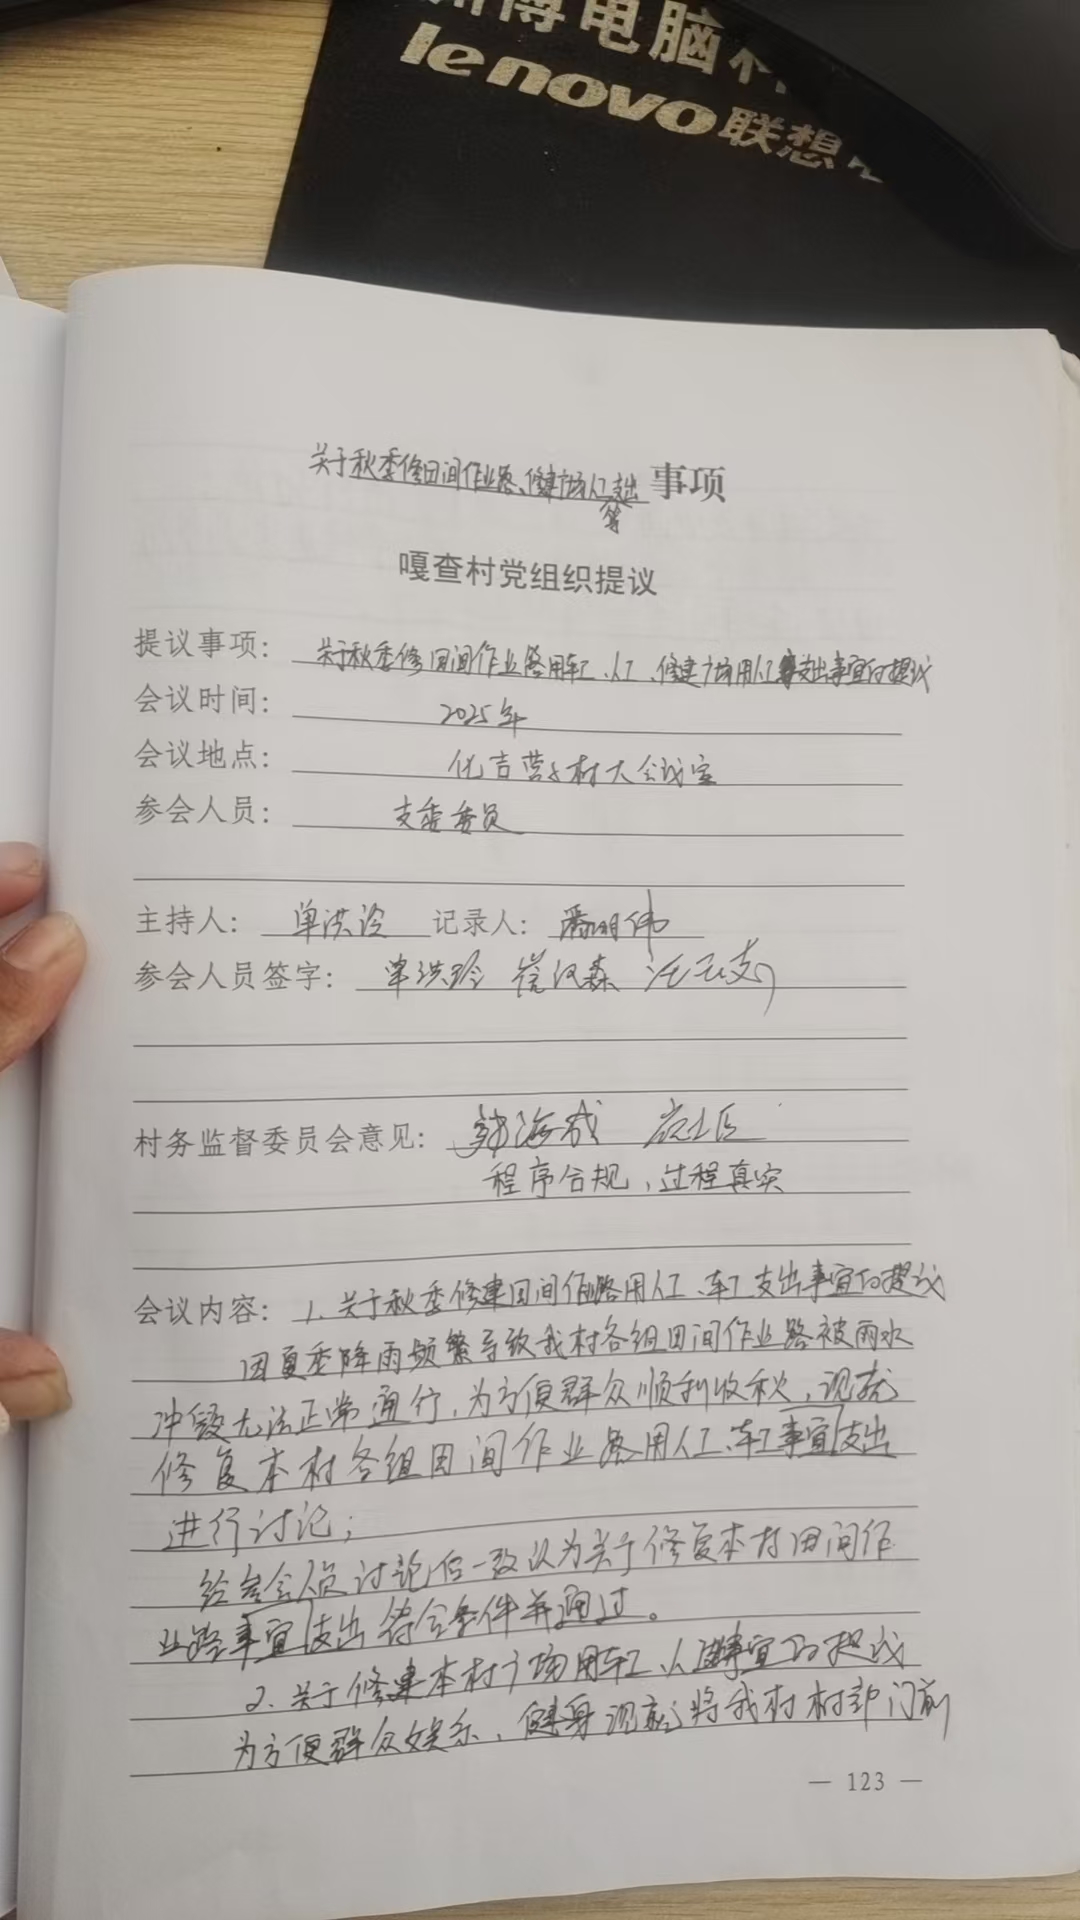 博电脑
lenovo联想
关于秋季修田间作业路、修建广场人工支出 事项
等
嘎查村党组织提议
提议事项: 关于秋季修田间作业路用车工、人工、修建广场用人工等支出事宜的提议
会议时间: 2025年
会议地点: 化吉营子村大会议室
参会人员: 支委委员
主持人: 单洪玲 记录人: 潘明伟
参会人员签字: 单洪玲 崔汉森
村务监督委员会意见: 韩海成
程序合规,过程真实
会议内容: 1.关于秋季修建田间作业路用人工、车工支出事宜的提议
因夏季降雨频繁导致我村各组田间作业路被雨水
冲毁无法正常通行,为方便群众顺利收秋,现就
修复本村各组田间作业路用人工、车工事宜支出
进行讨论;
经参会人员讨论后一致认为关于修复本村田间作
业路事宜支出符合条件并通过。
2.关于修建本村广场用车工、人工事宜的提议
为方便群众娱乐、健身现就将我村村部门前
— 123 —